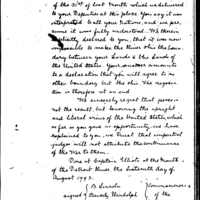 of the 31st of last Month which we delivered
to your Deputies at this place. You say it was
interpreted to all your Nations, and we pre-
sume it was fully understood. We therein
explicitly declared to you, that it was now
impossible to make the River Ohio the boun-
dary between your Lands & the Lands of
the United States. Your answer amounts
to a declaration that you will agree to no
other boundary but the Ohio. The nego-
ciation is therefore at an end.
We sincerely regret that peace is
not the result, but knowing the upright
and liberal views of the United States, which
so far as you gave us opportunity, we have
explained to you, we trust that impartial
judges will not attribute the continuance
of the War to them.
Done at Captain Elliots at the Mouth
of the Detroit River the sixteenth day of
August 1793.
B Lincoln
signed Beverly Randolph
Commissioners
of the